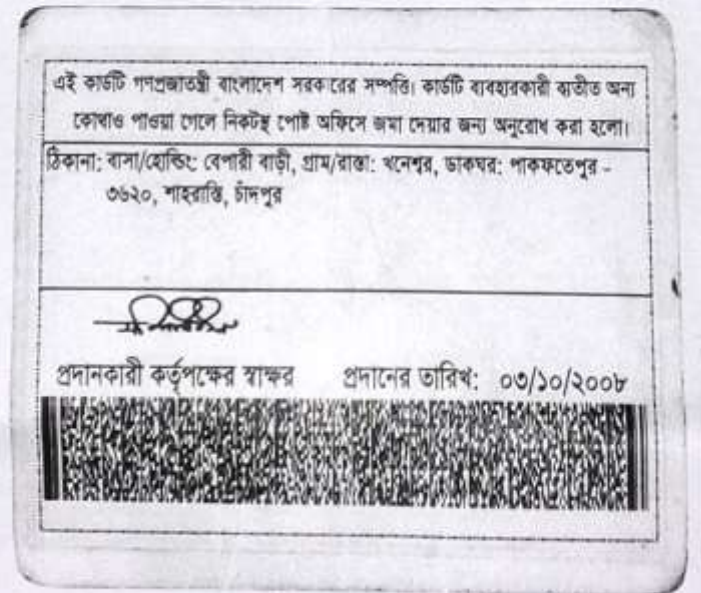 এই কার্ডটি গণপ্রজাতন্ত্রী বাংলাদেশ সরকারের সম্পত্তি। কার্ডটি ব্যবহারকারী ব্যতীত অন্য
কোথাও পাওয়া গেলে নিকটস্থ পোষ্ট অফিসে জমা দেয়ার জন্য অনুরোধ করা হলো।
ঠিকানা: বাসা/হোল্ডিং: বেপারী বাড়ী, গ্রাম/রাস্তা: খনেশ্বর, ডাকঘর: পাকফতেপুর -
৩৬২০, শাহরাস্তি, চাঁদপুর
প্রদানকারী কর্তৃপক্ষের স্বাক্ষর প্রদানের তারিখ: ০৩/১০/২০০৮